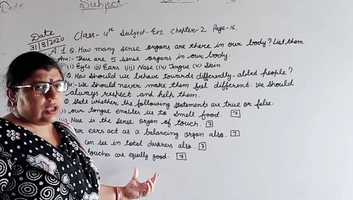 Date Subject
Date Class- 4th Subject- EVS Chapter-2 Page-16
31/8/2020
Q.1 How many sense organs are there in our body? List them
Ans:- There are 5 sense organs in our body.
(i) Eyes (ii) Ears (iii) Nose (iv) Tongue (v) Skin
How should we behave towards differently-abled people?
We should never make them feel different. We should
always respect and help them.
State whether the following statements are true or false.
our tongue enables us to smell food.
Nose is the sense organ of touch.
ears act as a balancing organ also.
can see in total darkness also.
touches are equally good.